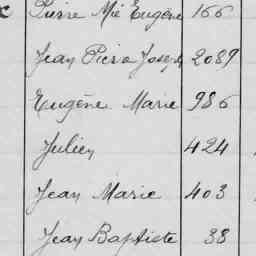 Pierre Mie Eugène 166
Jean Pierre Joseph 2089
Eugène Marie 986
Julien 424
Jean Marie 403
Jean Baptiste 38